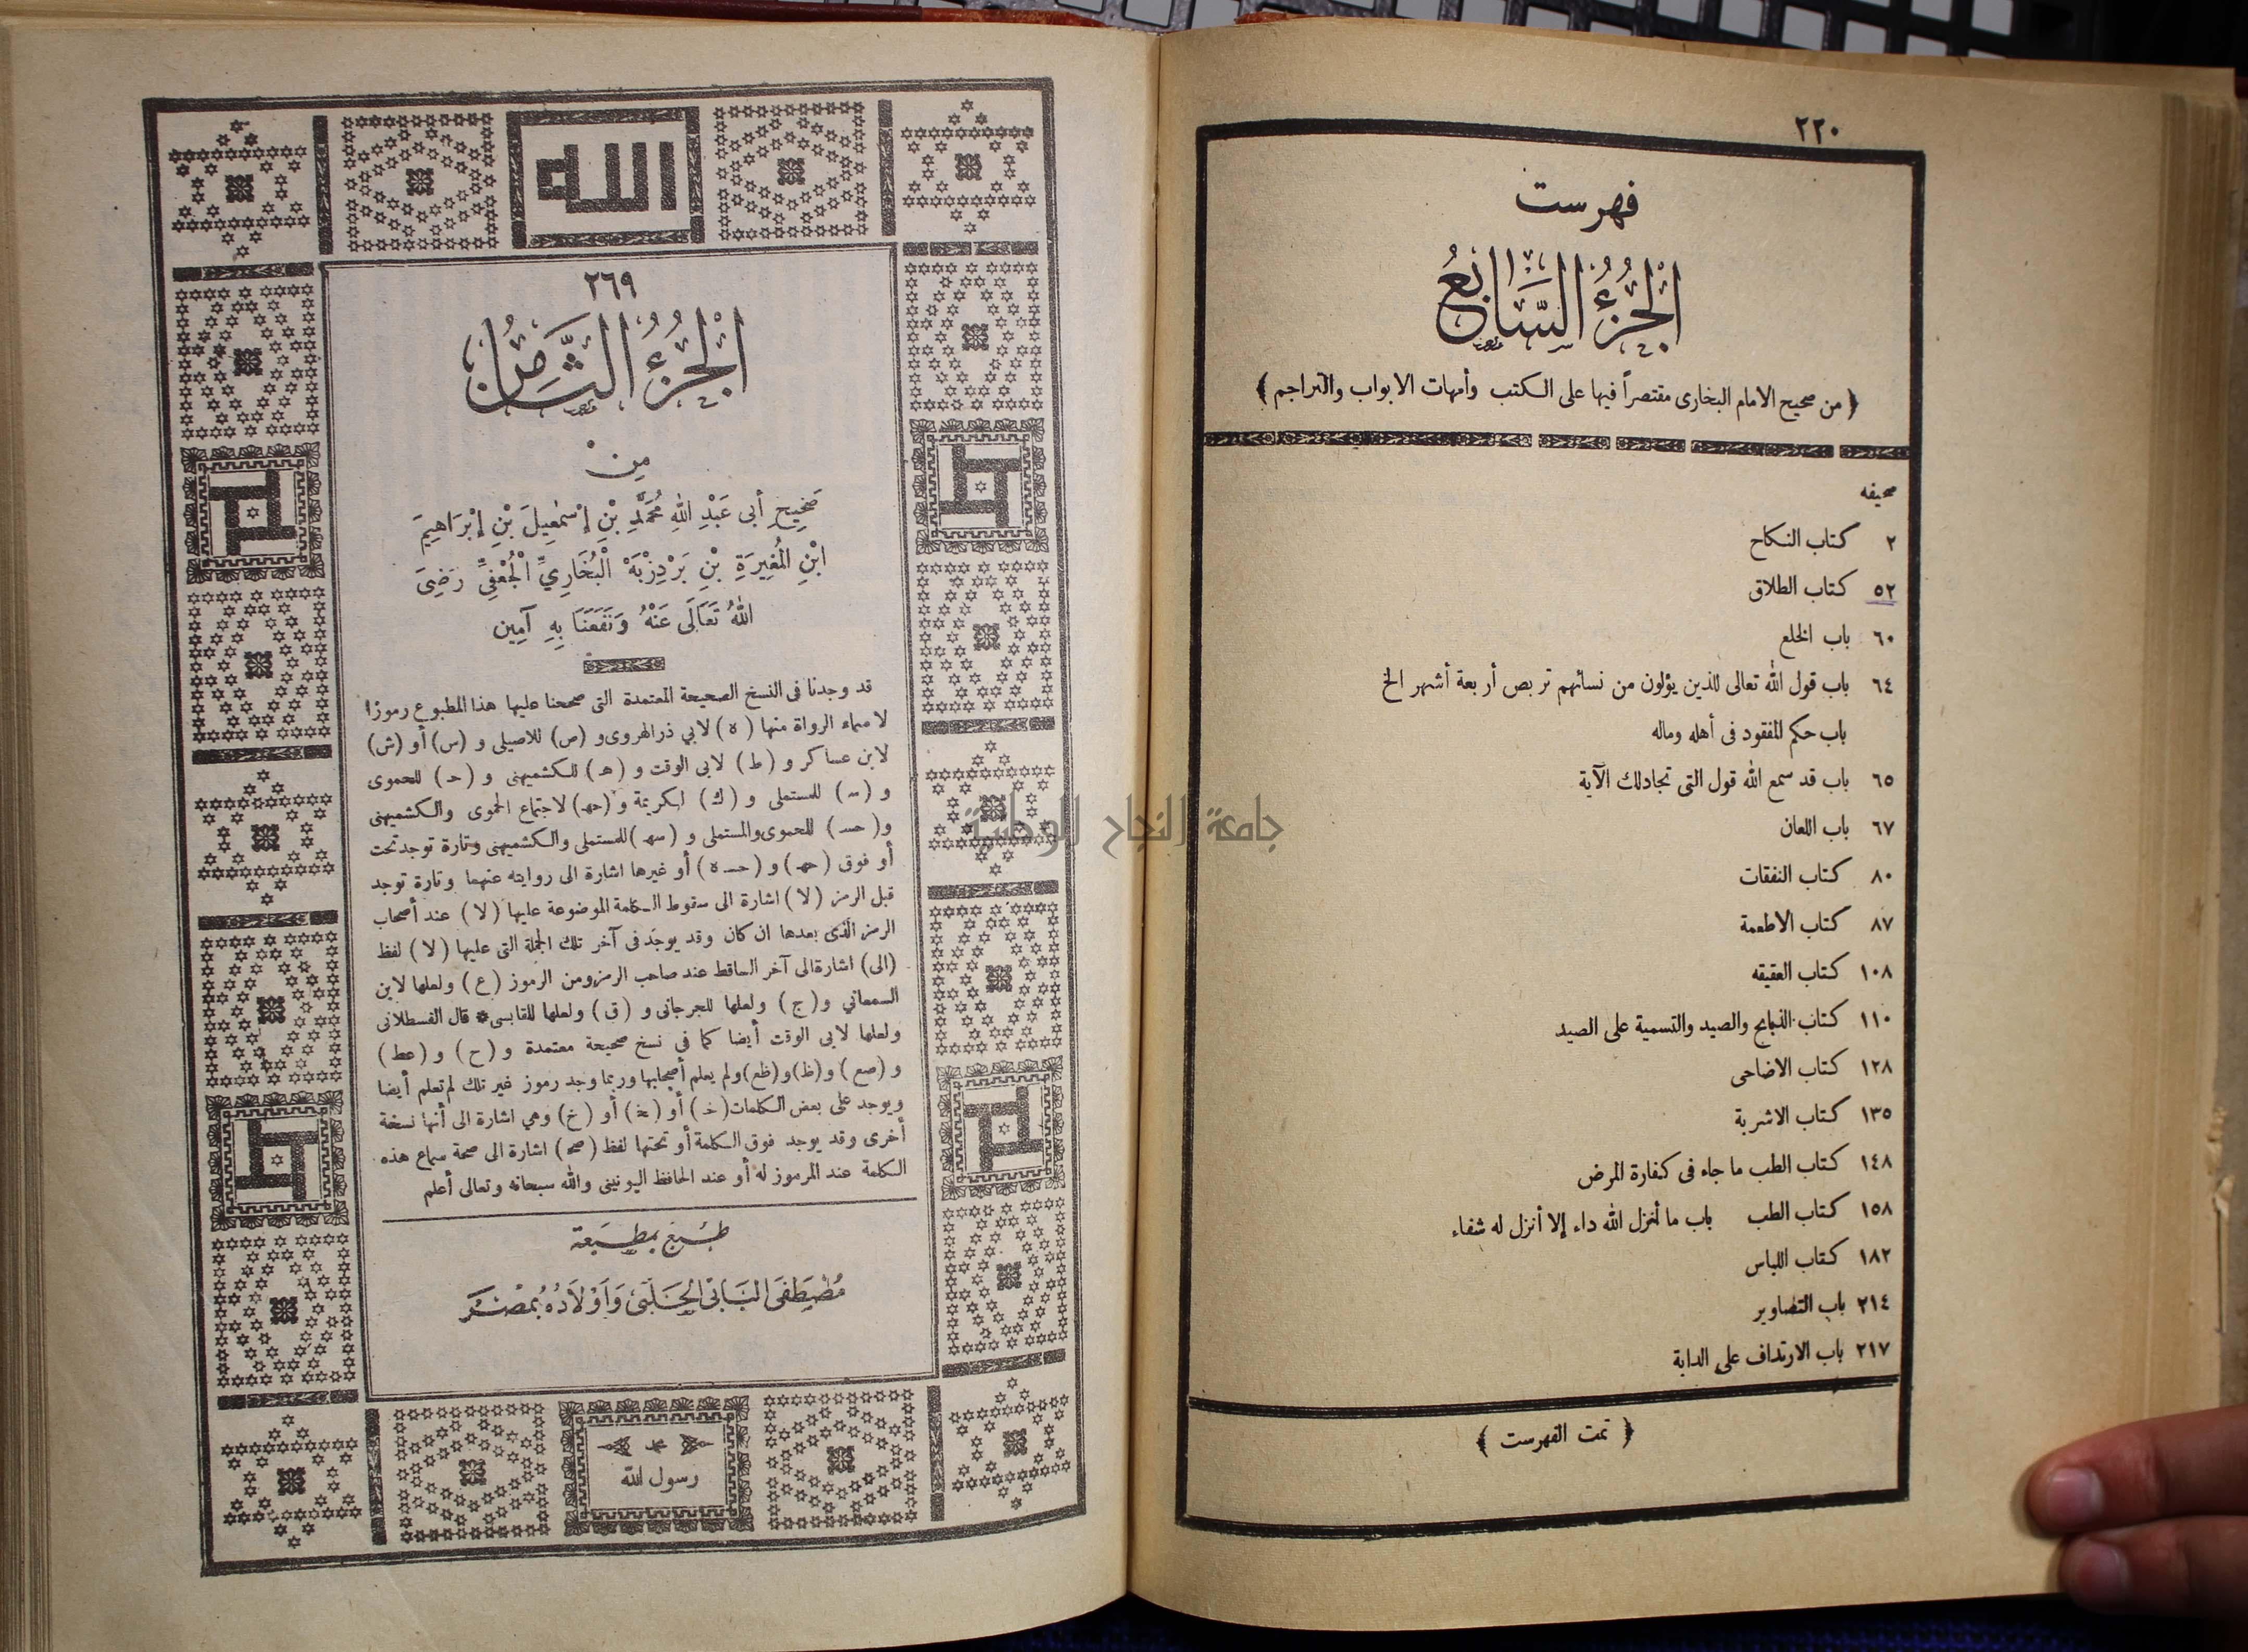 ٢٢٠
فهرست
الْجُزْءُ السَّابِعُ
﴿ من صحيح الامام البخارى مقتصراً فيها على الكتب وأمهات الابواب والتراجم ﴾
صحيفه
٢ كتاب النكاح
٥٢ كتاب الطلاق
٦٠ باب الخلع
٦٤ باب قول الله تعالى للذين يؤلون من نسائهم تربص أربعة أشهر الخ
باب حكم المفقود فى أهله وماله
٦٥ باب قد سمع الله قول التى تجادلك الآية
٦٧ باب اللعان
٨٠ كتاب النفقات
٨٧ كتاب الاطعمة
١٠٨ كتاب العقيقه
١١٠ كتاب الذبايح والصيد والتسمية على الصيد
١٢٨ كتاب الاضاحى
١٣٥ كتاب الاشربة
١٤٨ كتاب الطب ما جاء فى كفارة المرض
١٥٨ كتاب الطب باب ما أنزل الله داء إلا أنزل له شفاء
١٨٢ كتاب اللباس
٢١٤ باب التصاوير
٢١٧ باب الارتداف على الدابة
﴿ تمت الفهرست ﴾
جامعة النجاح الوطنية
الله
٢٦٩
الْجُزْءُ الثَّامِنُ
مِنْ
صَحِيحِ أبى عَبْدِ اللهِ مُحَمَّدِ بْنِ إسْمٰعِيلَ بْنِ إبْرَاهِيمَ
ابْنِ المُغِيرَةِ بْنِ بَرْدِزْبَهْ الْبُخَارِيِّ الْجُعْفِيِّ رَضِىَ
اللهُ تَعَالَى عَنْهُ وَنَفَعَنَا بِهِ آمِين
قد وجدنا فى النسخ الصحيحة المعتمدة التى صححنا عليها هذا المطبوع رموزا
لاسماء الرواة منها (ه) لابي ذر الهروى و (ص) للاصيلى و (س) أو (ش)
لابن عساكر و (ط) لابى الوقت و (هـ) للكشميهنى و (حـ) للحموى
و (سـ) للمستملى و (ك) لكريمة و (حهـ) لاجتماع الحموى والكشميهنى
و (حسـ) للحموى والمستملى و (سهـ) للمستملى والكشميهنى وتارة توجد تحت
أو فوق (حهـ) و (حسـ ه) أو غيرها اشارة الى روايته عنهما وتارة توجد
قبل الرمز (لا) اشارة الى سقوط الكلمة الموضوعة عليها (لا) عند أصحاب
الرمز الذى بعدها ان كان وقد يوجد فى آخر تلك الجملة التى عليها (لا) لفظ
(الى) اشارة الى آخر الساقط عند صاحب الرمز ومن الرموز (ع) ولعلها لابن
السمعاني و (ج) ولعلها للجرجانى و (ق) ولعلها للقابسى * قال القسطلانى
ولعلها لابى الوقت أيضا كما فى نسخ صحيحة معتمدة و (ح) و (عط)
و (صع) و (ظ) و (ظع) ولم يعلم أصحابها وربما وجد رموز غير تلك لم تعلم أيضا
ويوجد على بعض الكلمات (خـ) أو (خ) أو (خ) وهي اشارة الى أنها نسخة
أخرى وقد يوجد فوق الكلمة أو تحتها لفظ (صح) اشارة الى صحة سماع هذه
الكلمة عند المرموز له أو عند الحافظ اليونينى والله سبحانه وتعالى أعلم
طُبِعَ بِمَطْبَعَة
مُصْطَفَى البَابِى الحَلَبِى وَأَوْلَادُهُ بِمِصْرَ
محمد
رسول الله